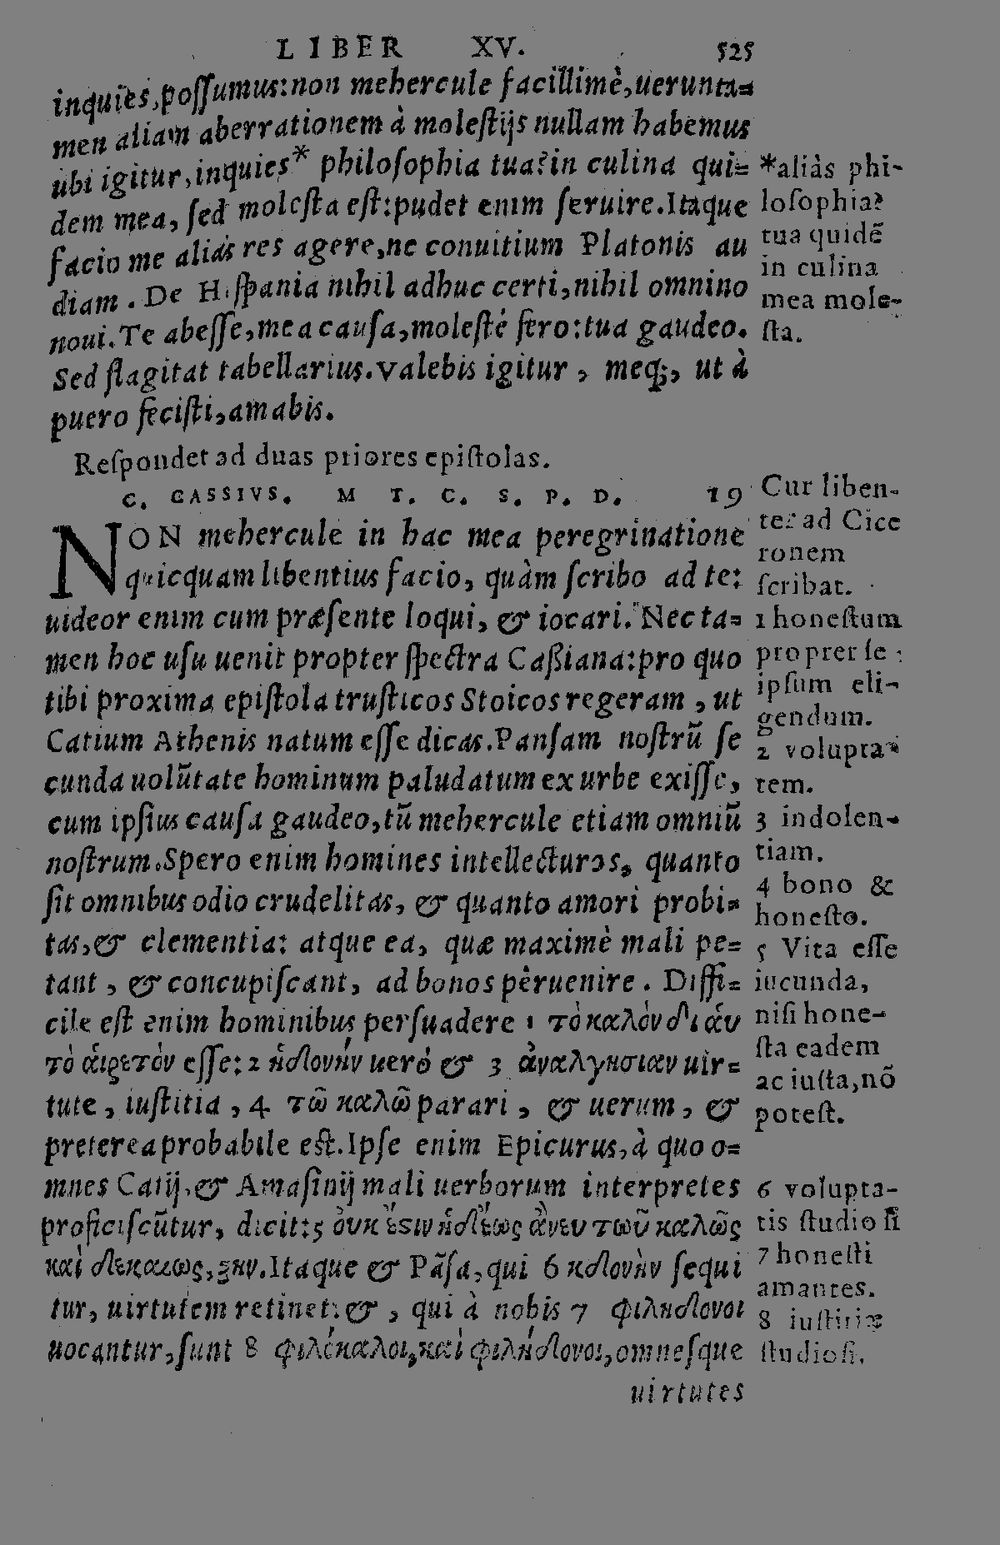 LIBER XV. 525
inquies, possumus: non mehercule facillimè, uerunta=
men aliam aberrationem à molestijs nullam habemus
ubi igitur, inquies* philosophia tua? in culina qui=
dem mea, sed molesta est: pudet enim seruire. Itaque
facio me alias res agere, ne conuitium Platonis au
diam. De Hispania nihil adhuc certi, nihil omnino
noui. Te abesse, mea causa, molestè fero: tua gaudeo.
Sed flagitat tabellarius. valebis igitur, meq;, ut à
puero fecisti, amabis.
*aliàs phi-
losophia?
tua quidẽ
in culina
mea mole-
sta.
Respondet ad duas priores epistolas.
C. CASSIVS. M T. C. S. P. D. 19
NON mehercule in hac mea peregrinatione
quicquam libentius facio, quàm scribo ad te:
uideor enim cum præsente loqui, & iocari. Nec ta=
men hoc usu uenit propter spectra Caßiana: pro quo
tibi proxima epistola trusticos Stoicos regeram, ut
Catium Athenis natum esse dicas. Pansam nostrũ se
cunda uolũtate hominum paludatum ex urbe exisse,
cum ipsius causa gaudeo, tũ mehercule etiam omniũ
nostrum. Spero enim homines intellecturos, quanto
sit omnibus odio crudelitas, & quanto amori probi=
tas, & clementia: atque ea, quæ maximè mali pe=
tant, & concupiscant, ad bonos peruenire. Diffi=
cile est enim hominibus persuadere 1 τὸ καλὸν δι ἁυ
τὸ ἁιρετὸν esse: 2 ἡδονήν uerò & 3 ἀναλγησιαν uir=
tute, iustitia, 4 τῶ καλῶ parari, & uerum, &
preterea probabile est. Ipse enim Epicurus, à quo o=
mnes Catij, & Amasinij mali uerborum interpretes
proficiscũtur, dicit: 5 ὀυκ ἔστιν ἡδέως ἄνευ τοῦ καλῶς
καὶ δικαιως, ζην. Itaque & Pãsa, qui 6 ηδονὴν sequi
tur, uirtutem retinet: &, qui à nobis 7 φιληδονοι
uocantur, sunt 8 φιλόκαλοι, καὶ φιλήδονοι, omnesque
uirtutes
Cur liben-
ter ad Cice
ronem
scribat.
1 honestum
propter se
ipsum eli-
gendum.
2 volupta-
tem.
3 indolen-
tiam.
4 bono &
honesto.
5 Vita esse
iucunda,
nisi hone-
sta eadem
ac iusta, nõ
potest.
6 volupta-
tis studiosi
7 honesti
amantes.
8 iustitiæ
studiosi.